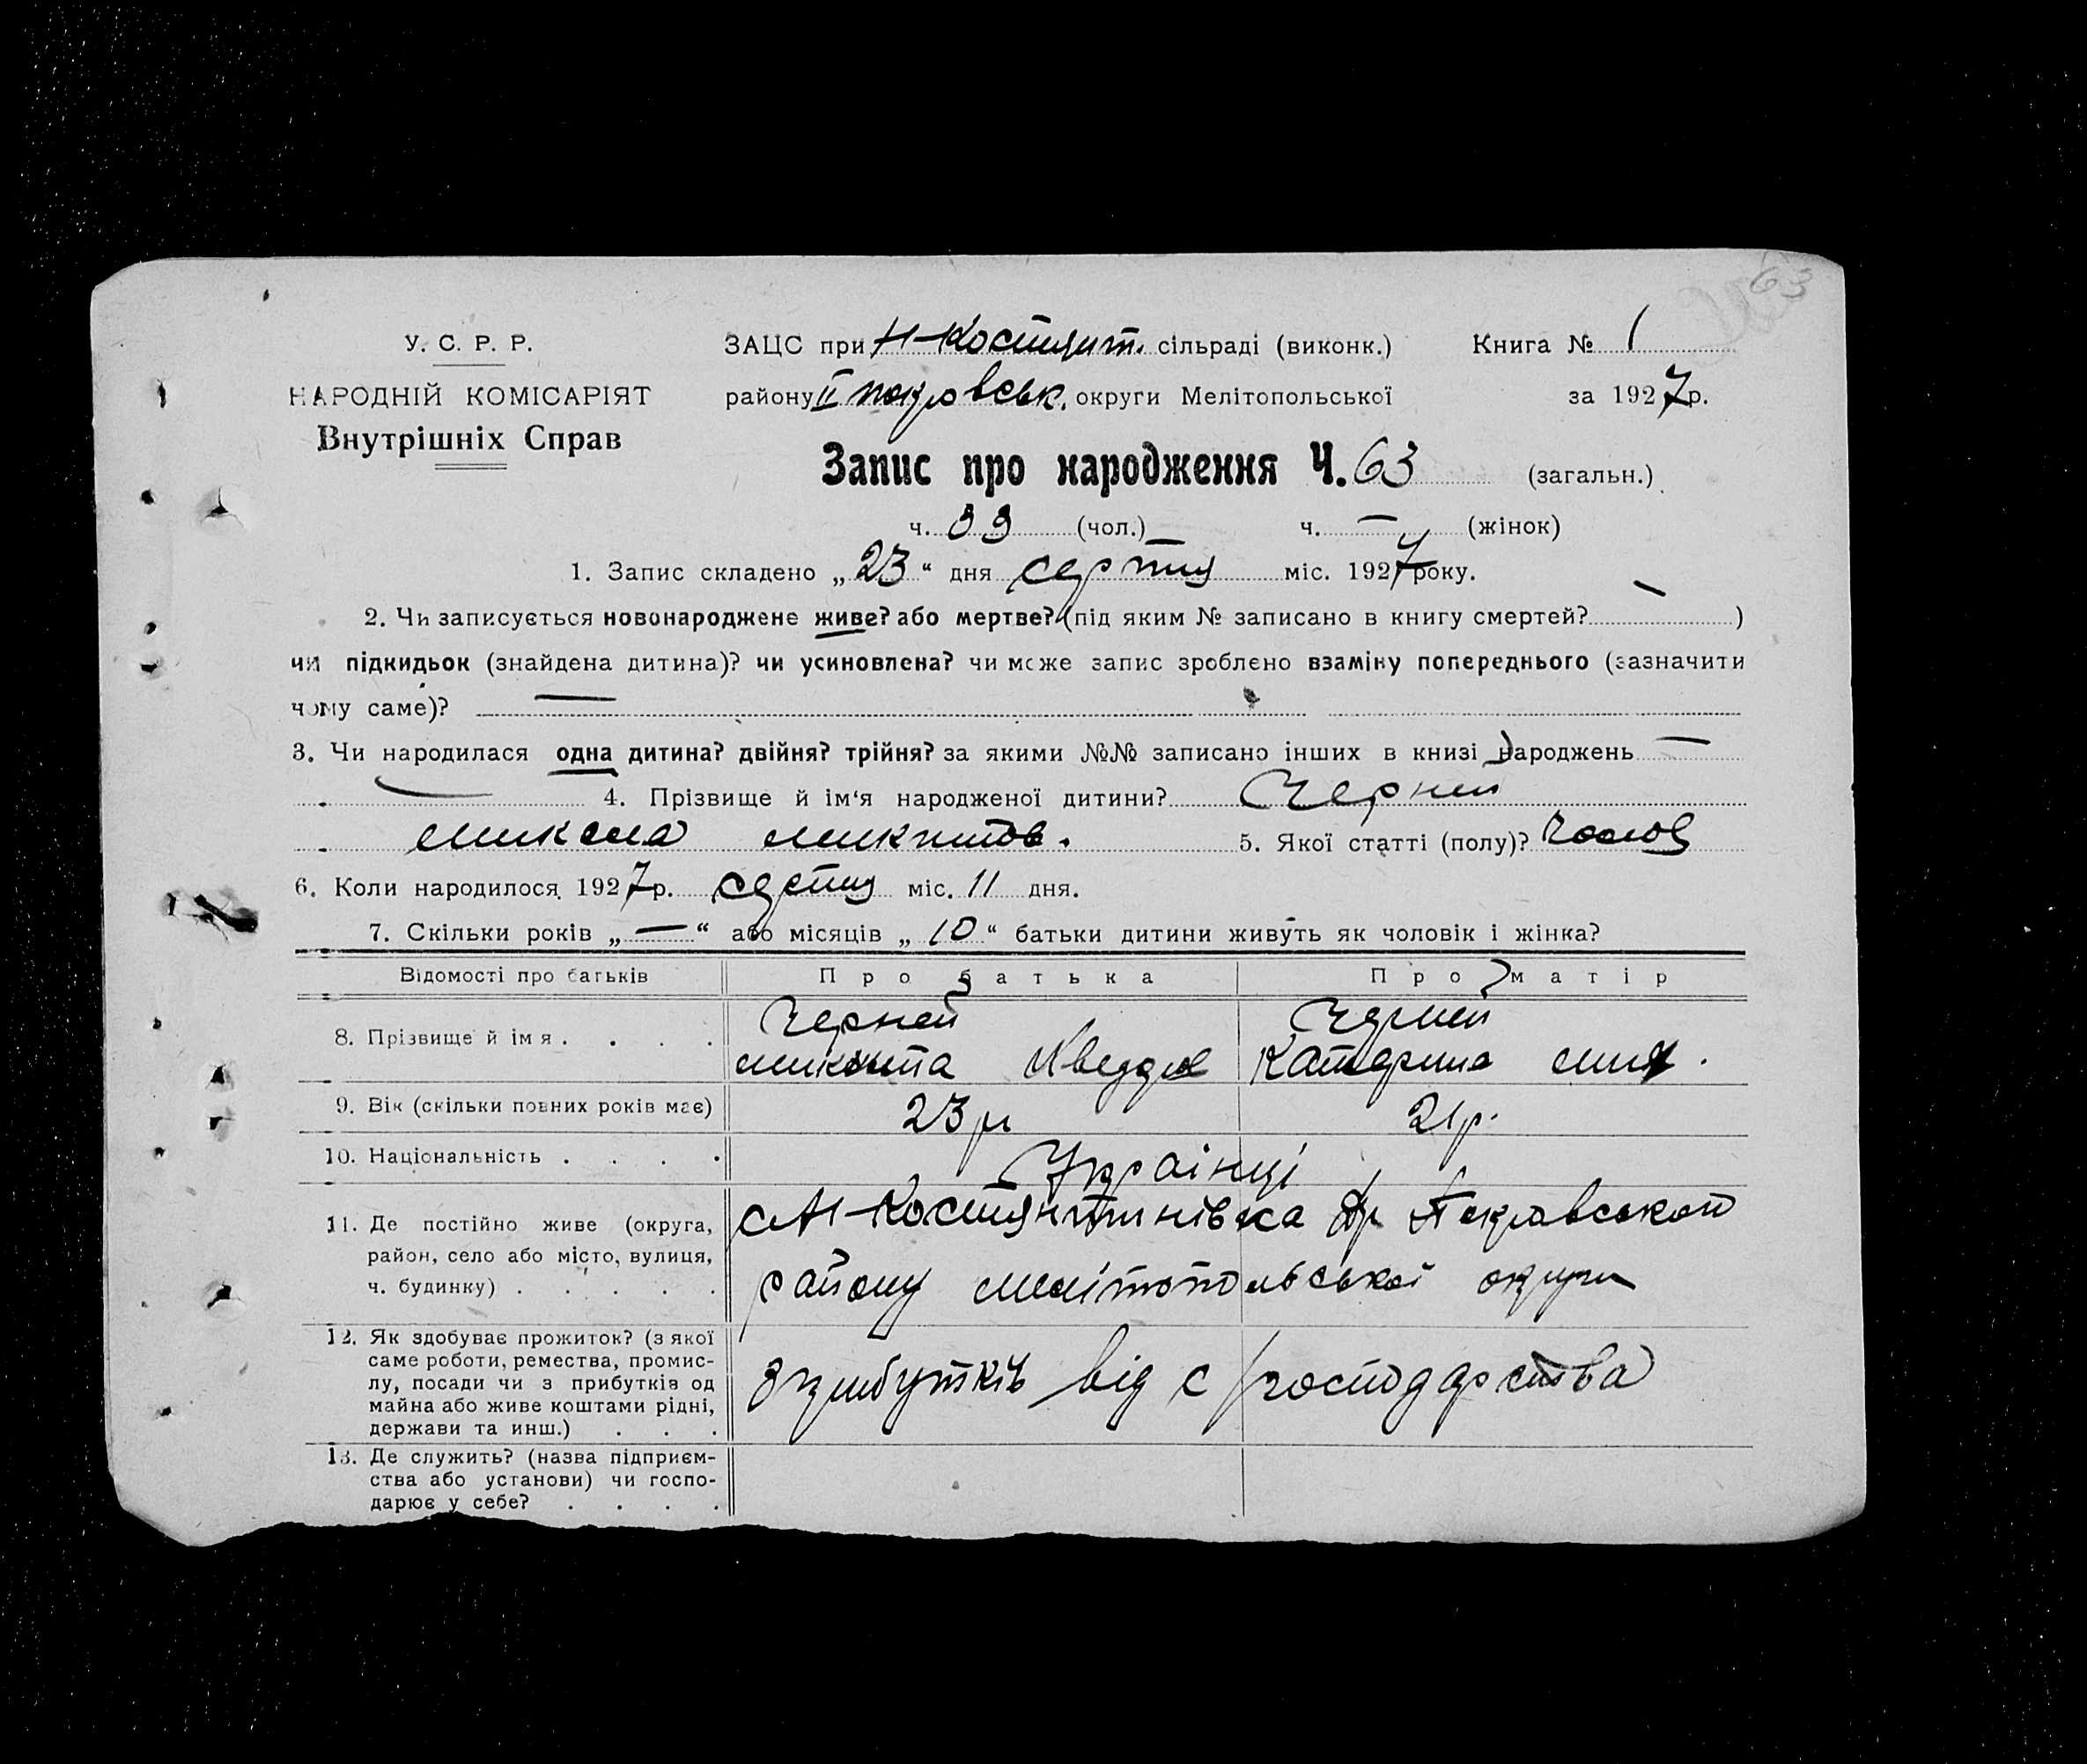 63
У. С. Р. Р.
НАРОДНІЙ КОМІСАРІЯТ
Внутрішніх Справ
ЗАЦС при Н-Костянт. сільраді (виконк.) Книга № 1
району II покровськ. округи Мелітопольської за 1927 р.
Запис про народження Ч. 63 (загальн.)
ч. 33 (чол.) ч. — (жінок)
1. Запис складено „23“ дня серпня міс. 1927 року.
2. Чи записується новонароджене живе? або мертве? (під яким № записано в книгу смертей? — )
чи підкидьок (знайдена дитина)? чи усиновлена? чи може запис зроблено взаміну попереднього (зазначити
чому саме)? —
3. Чи народилася одна дитина? двійня? трійня? за якими №№ записано інших в книзі народжень —
— 4. Прізвище й ім‘я народженої дитини? Черней
Микола Микитов. 5. Якої статті (полу)? Чолов
6. Коли народилося 1927 р. серпня міс. 11 дня.
7. Скільки років „—“ або місяців „10“ батьки дитини живуть як чоловік і жінка?
Відомості про батьків Про батька Про матір
8. Прізвище й імя . . . . Черней Черней
Микита Катерина
9. Вік (скільки повних років має) 23 р 21 р.
10. Національність . . . . Українці
11. Де постійно живе (округа, район, село або місто, вулиця, ч. будинку) . . . . . с Н-Костянтинівка Др Покровського
району мелітопольської округи
12. Як здобуває прожиток? (з якої
саме роботи, ремества, промис-
лу, посади чи з прибутків од
майна або живе коштами рідні,
держави та инш.) . . . з прибутків від с/господарства
13. Де служить? (назва підприєм-
ства або установи) чи госпо-
дарює у себе? . . . .